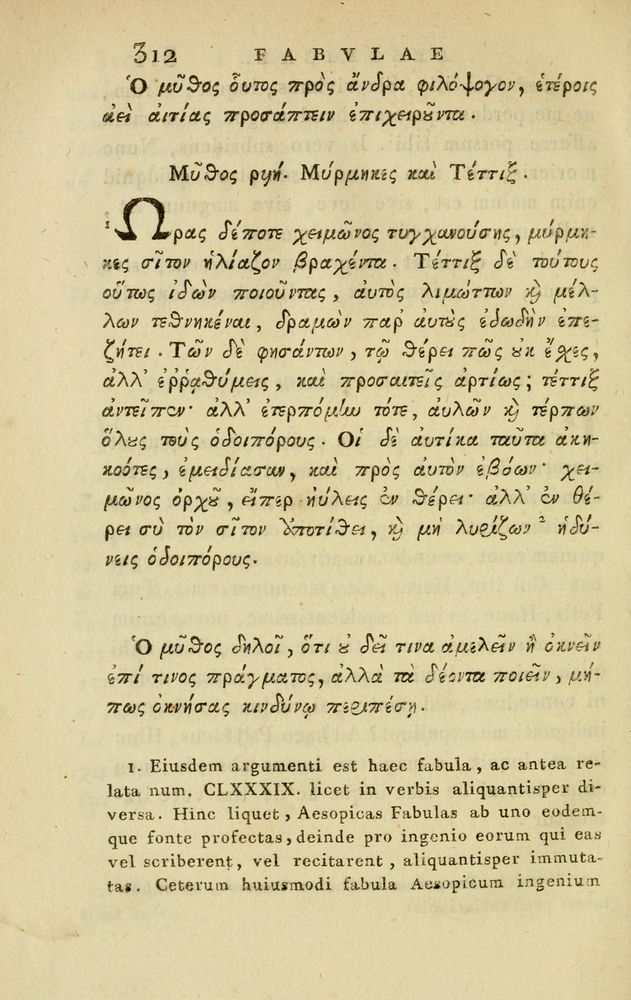 312 FABVLAE
Ὁ μῦθος οὗτος πρὸς ἄνδρα φιλόψογον, ἑτέροις
ἀεὶ αἰτίας προσάπτειν ἐπιχειρȣ͂ντα.
Μῦθος ρϟή. Μύρμηκες καὶ Τέττιξ.
¹ Ὥρας δέποτε χειμῶνος τυγχανούσης, μύρμη-
κες σῖτον ἡλίαζον βραχέντα. Τέττιξ δὲ τούτους
οὕτως ἰδὼν ποιοῦντας, αὐτὸς λιμώττων ϗ μέλ-
λων τεθνηκέναι, δραμὼν παρ' αὐτȣ̀ς ἐδωδὴν ἐπε-
ζήτει. Τῶν δὲ φησάντων, τῷ θέρει πῶς ȣκ ἔχες,
ἀλλ' ἐῤῥαθύμεις, καὶ προσαιτεῖς ἀρτίως; τέττιξ
ἀντεῖπεν· ἀλλ' ἐτερπόμην τότε, αὐλῶν ϗ τέρπων
ὅλȣς τοὺς ὁδοιπόρους. Οἱ δὲ αὐτίκα ταῦτα ἀκη-
κοότες, ἐμειδίασαν, καὶ πρὸς αὐτὸν ἐβόων· χει-
μῶνος ὀρχȣ͂, εἴπερ ηὔλεις ἐν θέρει· ἀλλ' ἐν θέ-
ρει σὺ τὸν σῖτον ὑποτίθει, ϗ μὴ λυρίζων ² ἡδύ-
νεις ὁδοιπόρους.
Ὁ μῦθος δηλοῖ, ὅτι ȣ δεῖ τινα ἀμελεῖν ἢ ὀκνεῖν
ἐπί τινος πράγματος, ἀλλὰ τὰ δέοντα ποιεῖν, μή-
πως ὀκνήσας κινδύνῳ περιπέσῃ.
1. Eiusdem argumenti est haec fabula, ac antea re-
lata num. CLXXXIX. licet in verbis aliquantisper di-
versa. Hinc liquet, Aesopicas Fabulas ab uno eodem-
que fonte profectas, deinde pro ingenio eorum qui eas
vel scriberent, vel recitarent, aliquantisper immuta-
tas. Ceterum huiusmodi fabula Aesopicum ingenium